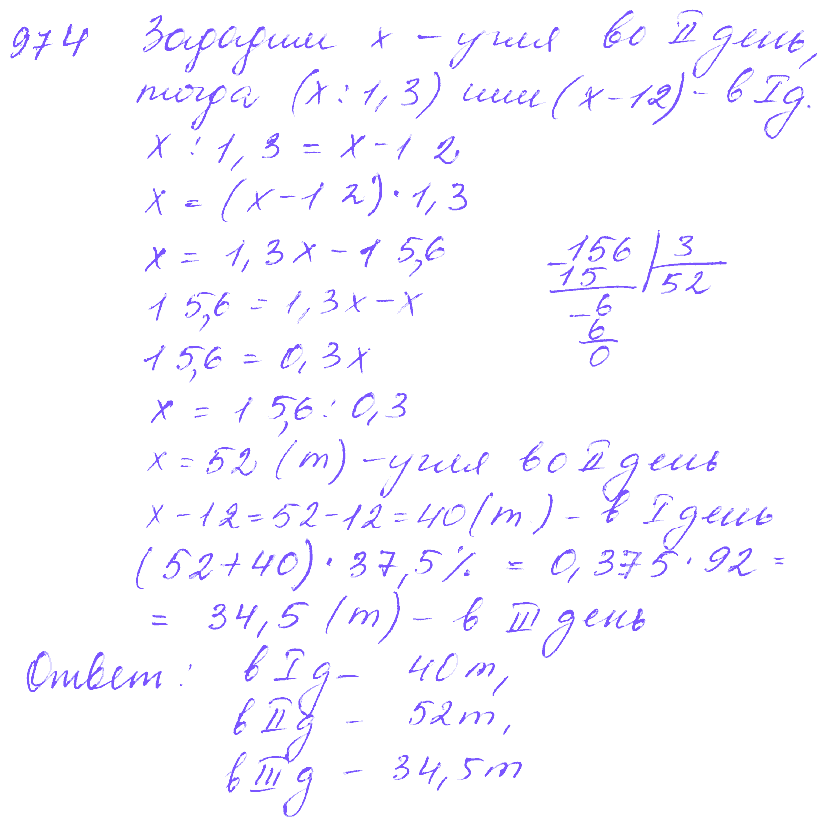 974 Зададим x – угля во II день,
тогда (x : 1,3) или (x – 12) – в I д.
x : 1,3 = x – 12
x = (x – 12) · 1,3
x = 1,3x – 15,6
15,6 = 1,3x – x
15,6 = 0,3x
x = 15,6 : 0,3
–156 | 3
15 | 52
–6
6
0
x = 52 (т) – угля во II день
x – 12 = 52 – 12 = 40 (т) – в I день
(52 + 40) · 37,5% = 0,375 · 92 =
= 34,5 (т) – в III день
Ответ: в I д – 40 т,
в II д – 52 т,
в III д – 34,5 т